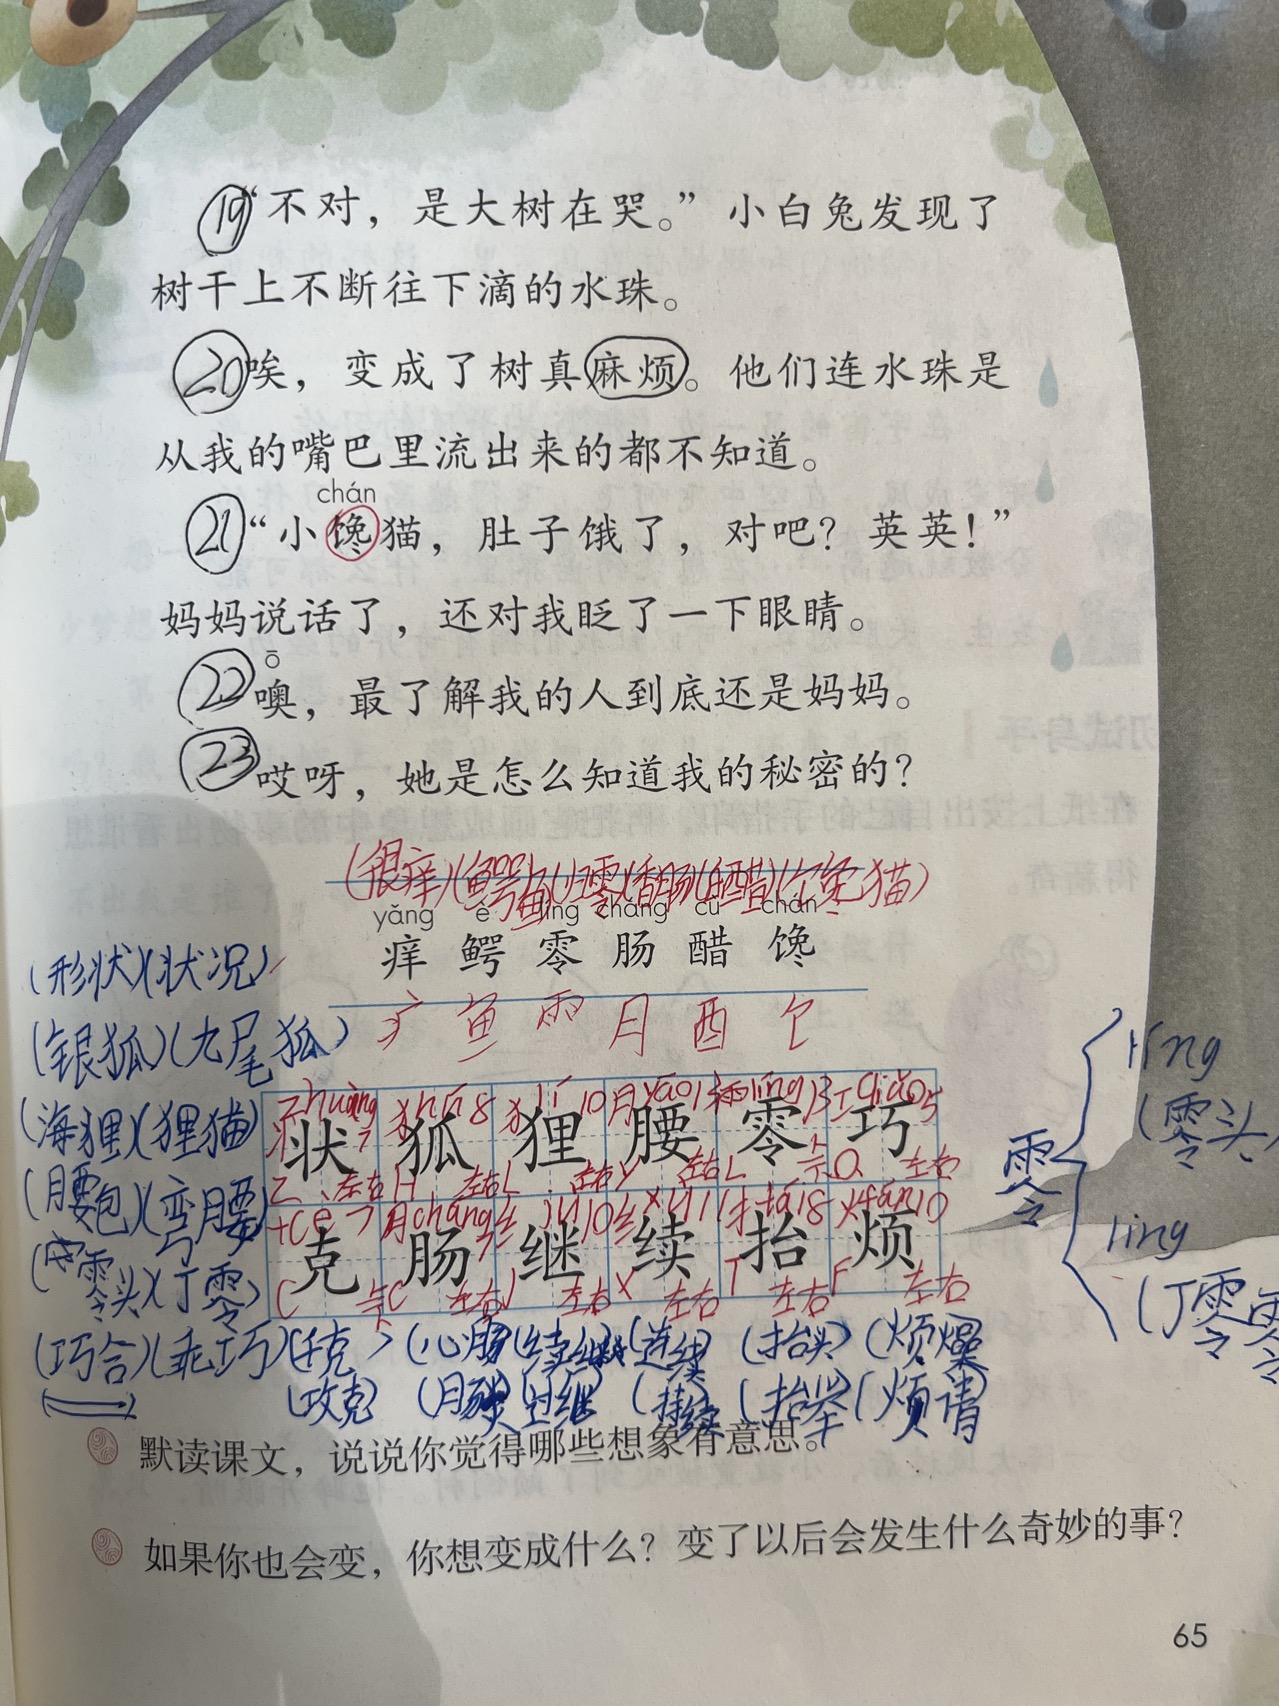 ⑲“不对，是大树在哭。”小白兔发现了
树干上不断往下滴的水珠。
⑳唉，变成了树真麻烦。他们连水珠是
从我的嘴巴里流出来的都不知道。
chán
㉑“小馋猫，肚子饿了，对吧？英英！”
妈妈说话了，还对我眨了一下眼睛。
ō
㉒噢，最了解我的人到底还是妈妈。
㉓哎呀，她是怎么知道我的秘密的？
(很痒)(鳄鱼)(归零)(香肠)(白醋)(小馋猫)
yǎng è líng cháng cù chán
痒 鳄 零 肠 醋 馋
疒 鱼 雨 月 酉 饣
(形状)(状况)
(银狐)(九尾狐)
(海狸)(狸猫)
(腰包)(弯腰)
(零头)(丁零)
(巧合)(乖巧)
zhuàng 7 hú 8 lí 10 月 yāo 13 雨 líng 13 工 qiǎo 5
状 狐 狸 腰 零 巧
Z 左右 H 左右 L 左右 Y 左右 L 上下 Q 左右
十 kè 7 月 cháng 纟 jì 10 纟 xù 11 扌 tái 8 火 fán 10
克 肠 继 续 抬 烦
C 左右 J 左右 X 左右 T 左右 F 左右
零
líng
(零头)
líng
(丁零零
(千克) (心肠) (继续) (连续) (抬头) (烦燥)
(攻克) (过继) (持续) (抬举) (烦请)
默读课文，说说你觉得哪些想象有意思。
如果你也会变，你想变成什么？变了以后会发生什么奇妙的事？
65